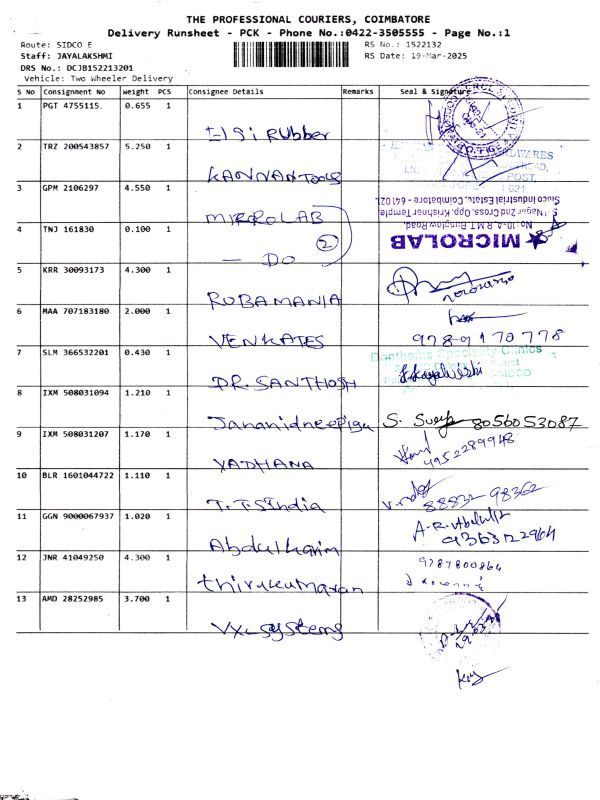 THE PROFESSIONAL COURIERS, COIMBATORE
Delivery Runsheet - PCK - Phone No.:0422-3505555 - Page No.:1
Route: SIDCO E
RS No.: 1522132
Staff: JAYALAKSHMI
RS Date: 19-Mar-2025
DRS No.: DCJB152213201
Vehicle: Two Wheeler Delivery
S No Consignment No Weight PCS Consignee Details Remarks Seal & Signature
1 PGT 4755115. 0.655 1
Elgi Rubber
2 TRZ 200543857 5.250 1
KANNAN Tools
3 GPM 2106297 4.550 1
MICROLAB
4 TNJ 161830 0.100 1
— DO 2
No: 10-A, R.M.T. Bunglow Road,
Nagar 2nd Cross, Opp. Krishner Temple,
Sidco Industrial Estate, Coimbatore - 641 021.
MICROLAB
5 KRR 30093173 4.300 1
RUBAMANIA
6 MAA 707183180 2.000 1
VENKATES 9789170778
7 SLM 366532201 0.430 1
DR. SANTHOSH
Specialty Clinics
8 IXM 508031094 1.210 1
Jananidneepiga S. Surya 8056053087
9 IXM 508031207 1.170 1
YADHANA 4952289948
10 BLR 1601044722 1.110 1
T.T.S India 88832 98362
11 GGN 9000067937 1.020 1
Abdulkarim 9363122964
12 JNR 41049250 4.300 1
9787800864
thirukumaran
13 AMD 28252985 3.700 1
VXL systems